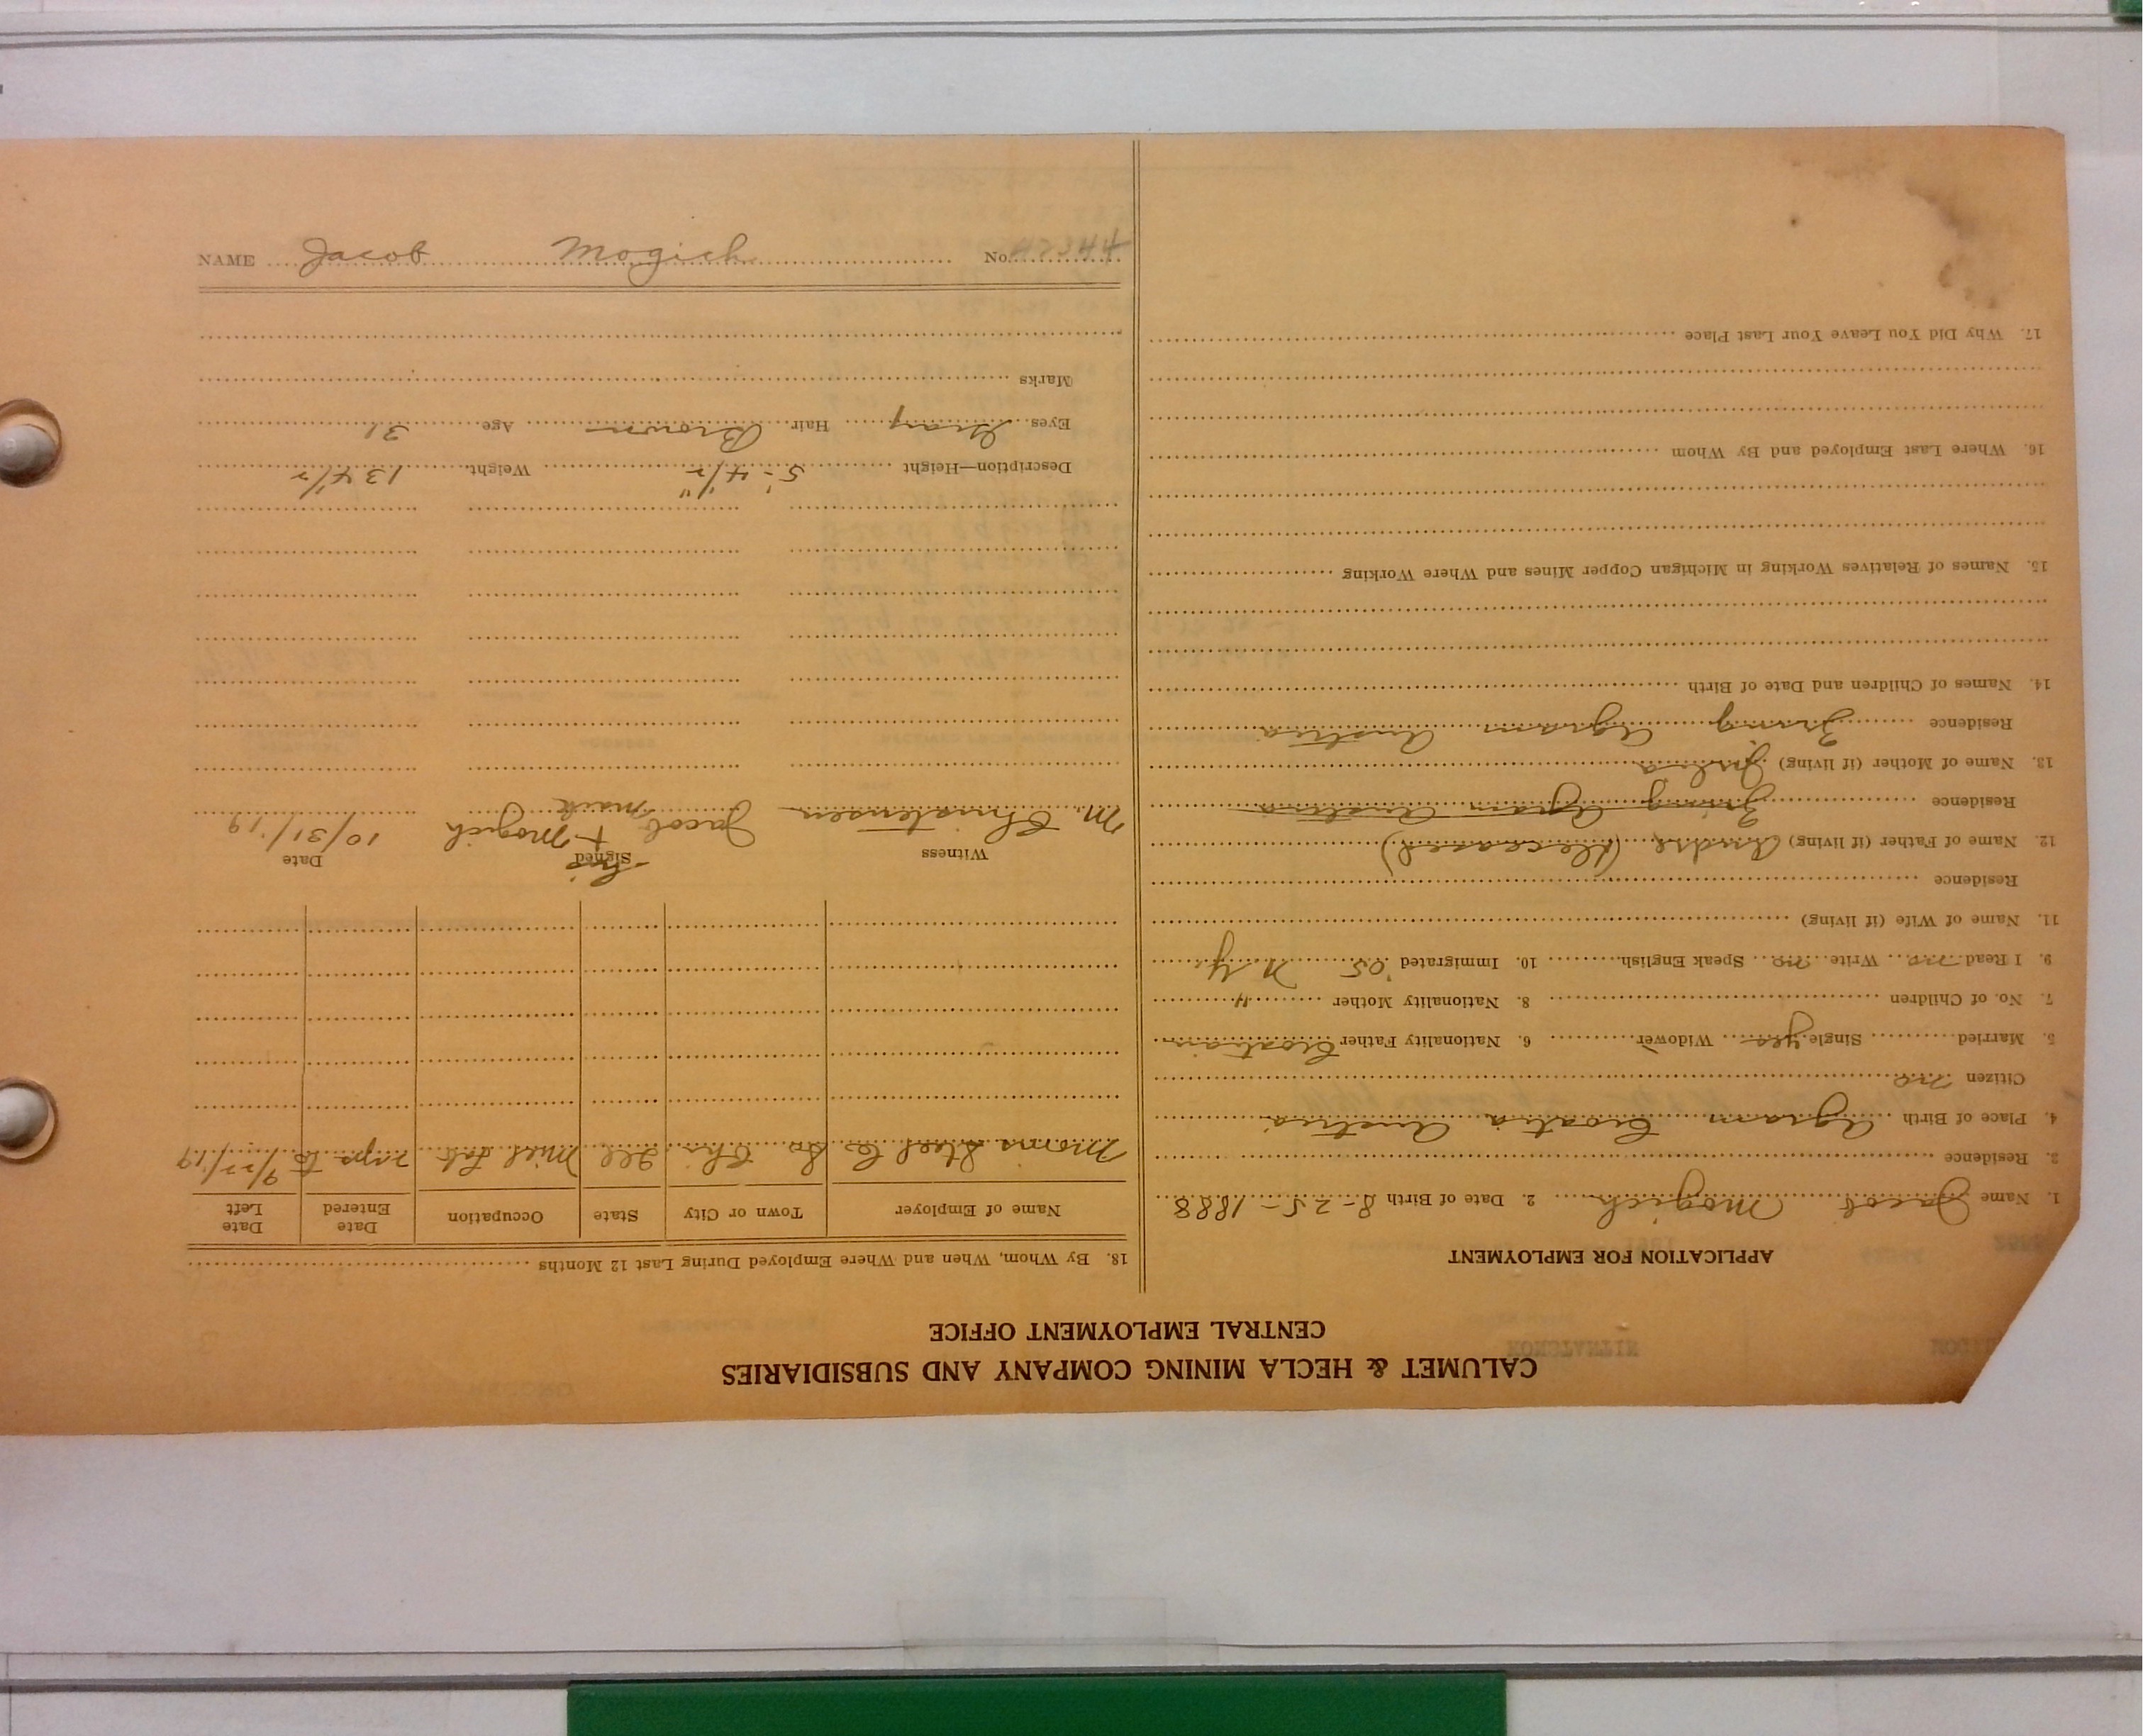 CALUMET & HECLA MINING COMPANY AND SUBSIDIARIES
CENTRAL EMPLOYMENT OFFICE
APPLICATION FOR EMPLOYMENT
1. Name Jacob Mogich 2. Date of Birth 8-25-1888
3. Residence
4. Place of Birth Agram Croatia Austria
Citizen no
5. Married Single yes Widower 6. Nationality Father Croatian
7. No. of Children 8. Nationality Mother "
9. I Read no Write no Speak English 10. Immigrated '05 N Y
11. Name of Wife (if living)
Residence
12. Name of Father (if living) (deceased)
Residence Agram Austria
13. Name of Mother (if living)
Residence Agram Austria
14. Names of Children and Date of Birth
15. Names of Relatives Working in Michigan Copper Mines and Where Working
16. Where Last Employed and By Whom
17. Why Did You Leave Your Last Place
18. By Whom, When and Where Employed During Last 12 Months
Name of Employer Town or City State Occupation Date Entered Date Left
Steel Co So Chi Ill Mill Lab 9/27/19
Witness Signed Date
M. Christensen Jacob his + mark Mogich 10/31/'19
Description—Height 5'-4 1/2" Weight 134 1/2
Eyes Gray Hair Brown Age 31
Marks
NAME Jacob Mogich No.